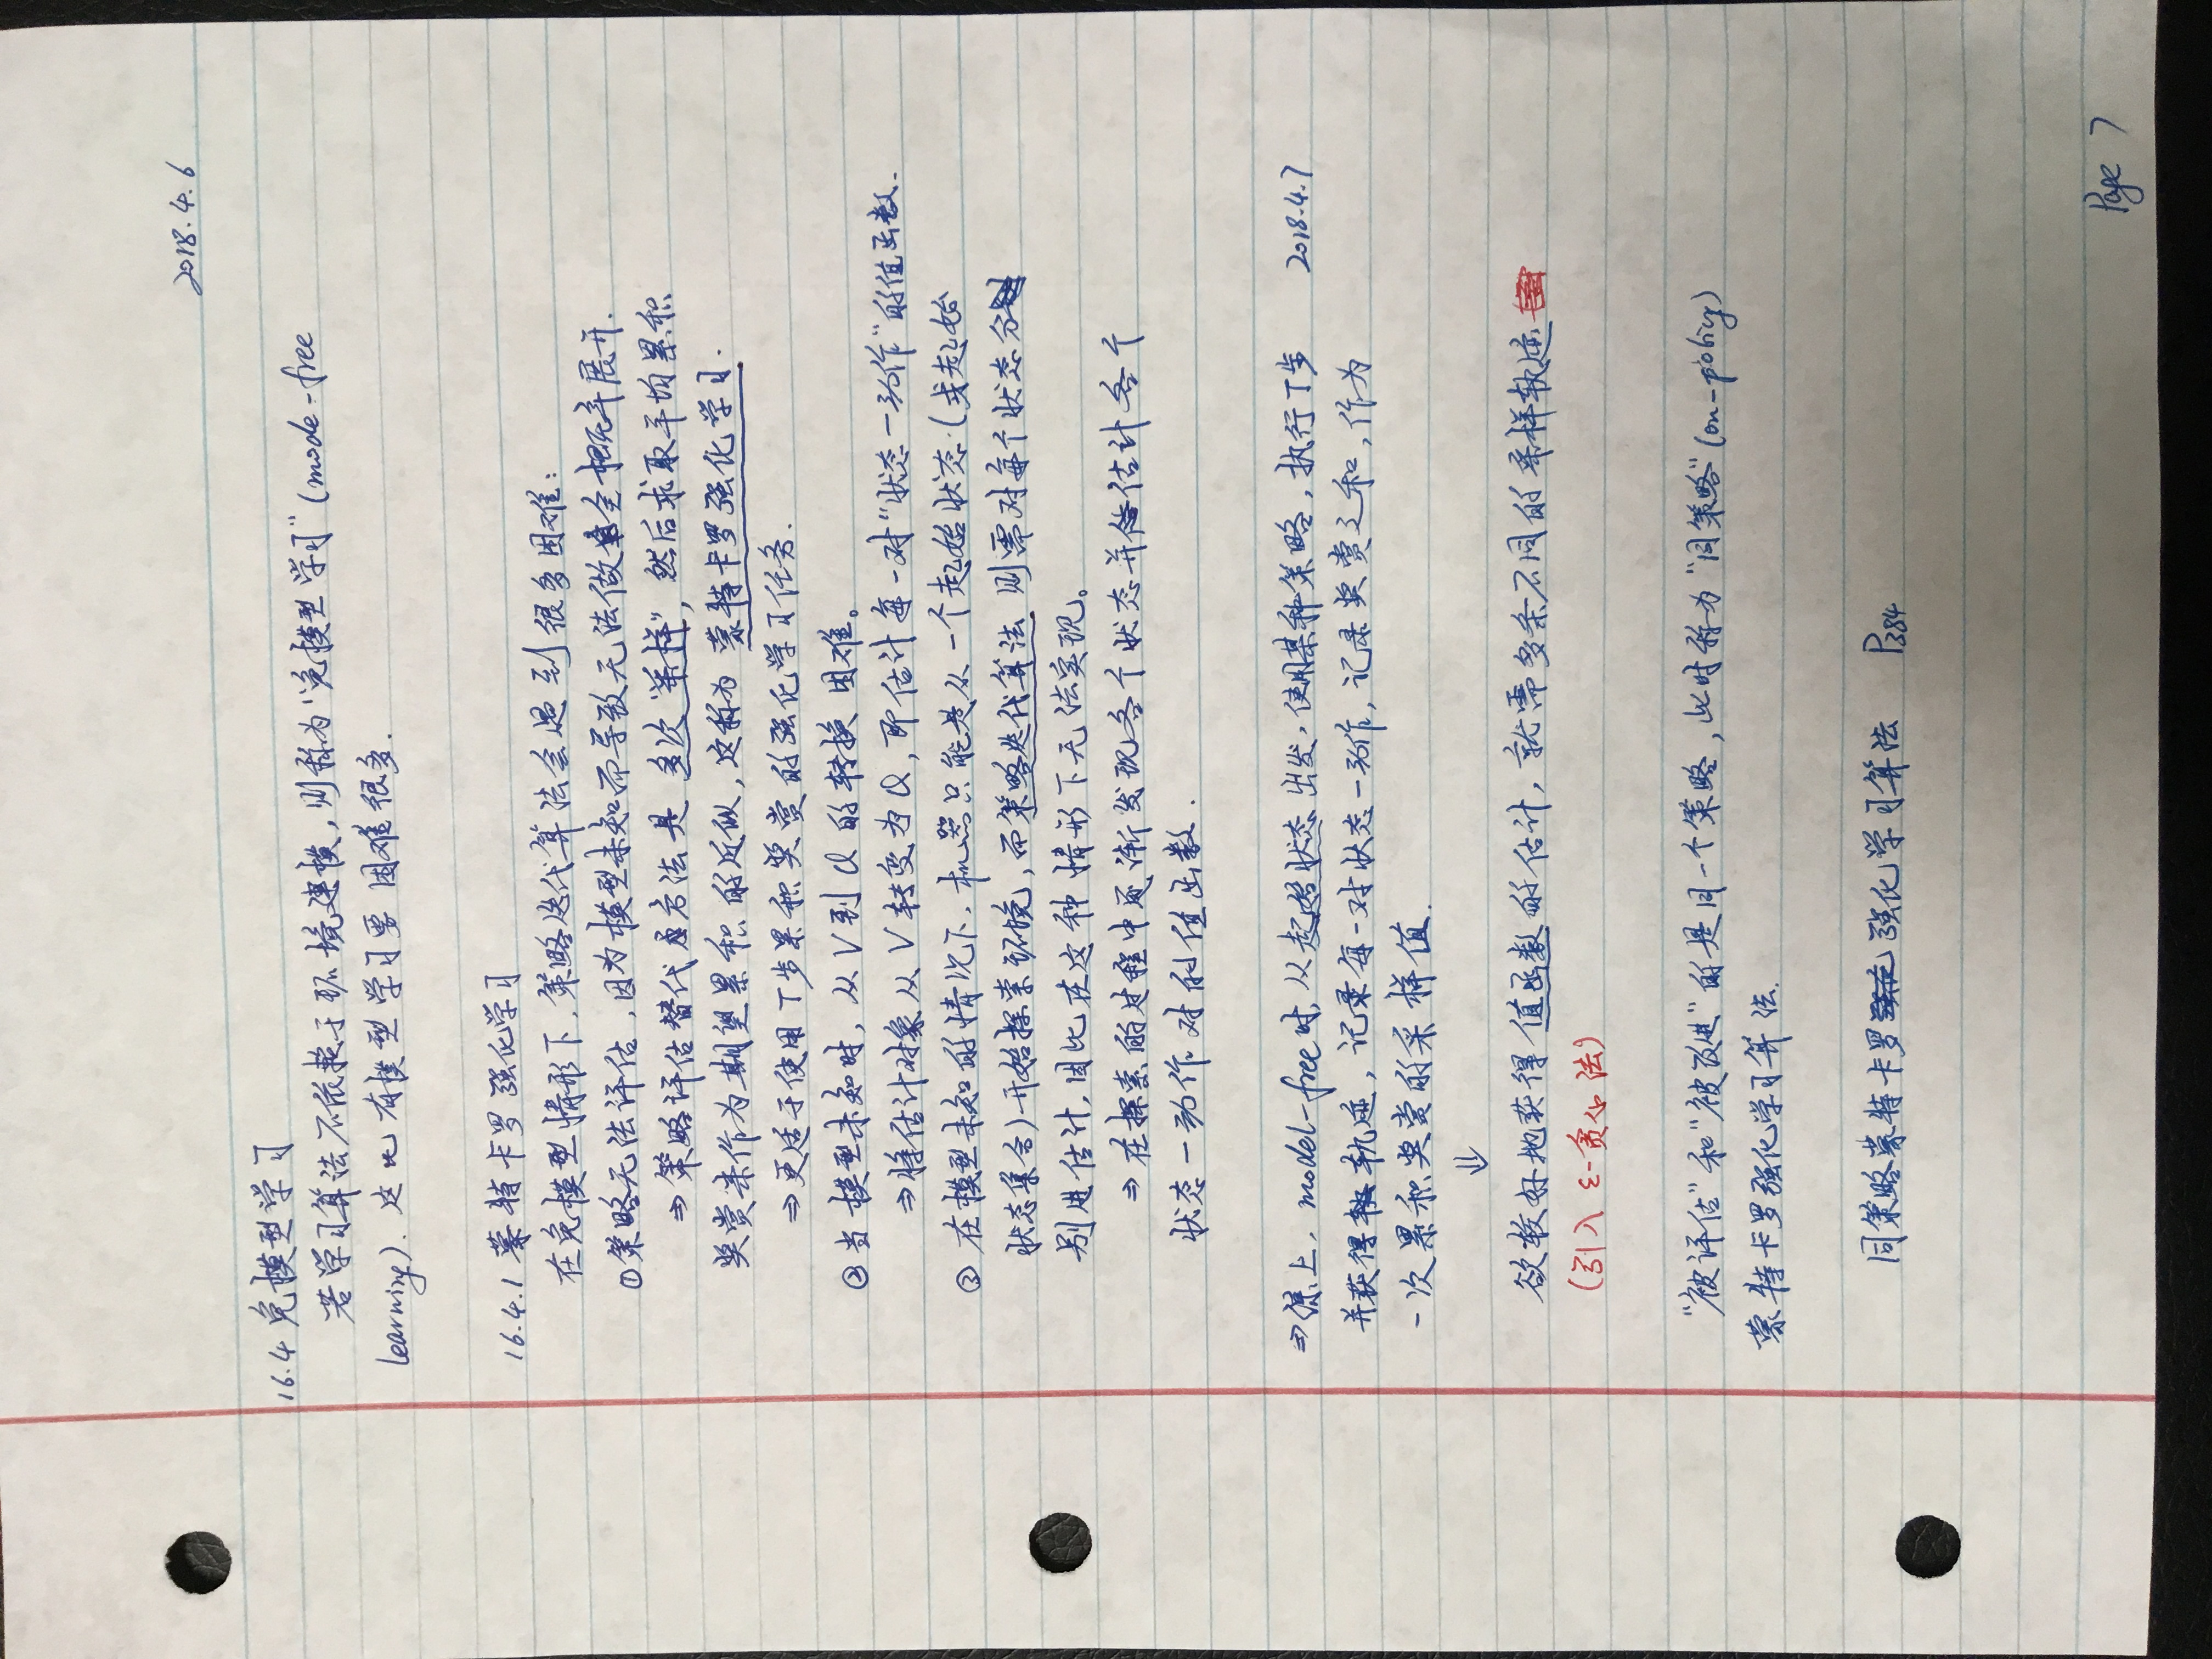 2018.4.6
16.4 免模型学习
若学习算法不依赖于环境建模,则称为"免模型学习"(mode-free
learning).这比有模型学习要困难很多.
16.4.1 蒙特卡罗强化学习
在免模型情形下,策略迭代算法会遇到很多困难:
①策略无法评估,因为模型未知而导致无法做全概率展开.
⇒策略评估替代方法是多次"采样",然后求取平均累积
奖赏来作为期望累积的近似,这称为蒙特卡罗强化学习.
⇒更适于使用T步累积奖赏的强化学习任务.
②当模型未知时,从V到Q的转换困难。
⇒将估计对象从V转变为Q,即估计每一对"状态-动作"的值函数.
③在模型未知的情况下,机器只能是从一个起始状态(或起始
状态集合)开始探索环境,而策略迭代算法则需对每个状态分
别进估计,因此在这种情形下无法实现。
⇒在探索的过程中逐渐发现各个状态并估计各个
状态-动作对的值函数.
⇒综上,model-free时,从起始状态出发,使用某种策略,执行T步 2018.4.7
并获得轨迹,记录每一对状态-动作,记录奖赏之和,作为
一次累积奖赏的采样值.
⇓
欲较好地获得值函数的估计,就需多条不同的采样轨迹
(引入ε-贪心法)
"被评估"和"被改进"的是同一个策略,此时称为"同策略"(on-policy)
蒙特卡罗强化学习算法.
同策略蒙特卡罗强化学习算法 P384
Page 7